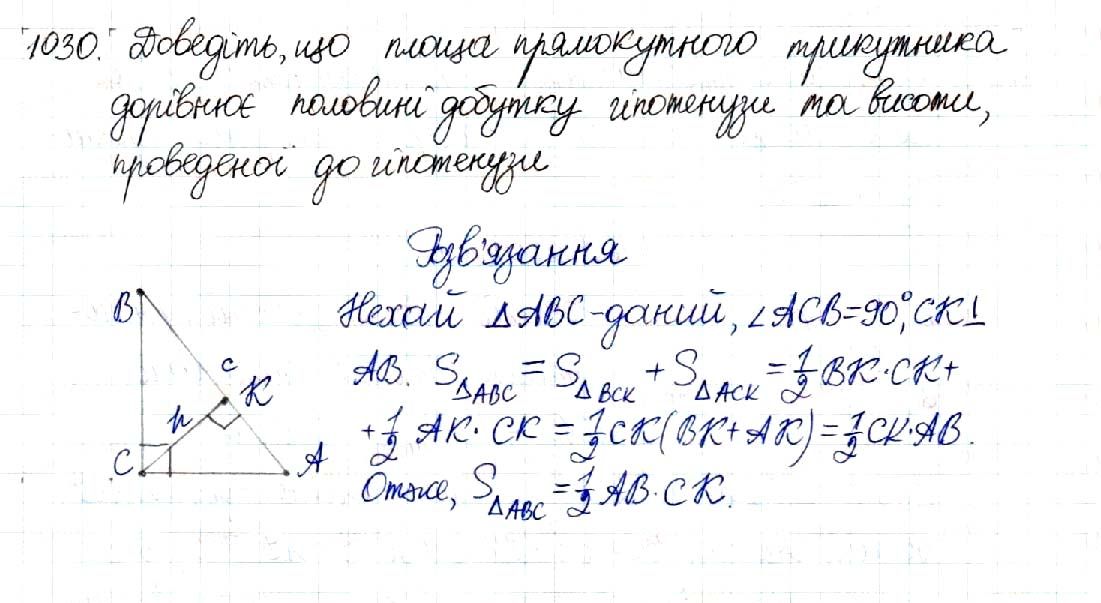 1030. Доведіть, що площа прямокутного трикутника
дорівнює половині добутку гіпотенузи та висоти,
проведеної до гіпотенузи
Розв'язання
B
c
K
h
C
A
Нехай △ABC-даний, ∠ACB=90°, CK⊥
AB. S△ABC = S△BCK + S△ACK = 1/2 BK·CK+
+ 1/2 AK·CK = 1/2 CK(BK+AK) = 1/2 CK·AB.
Отже, S△ABC = 1/2 AB·CK.